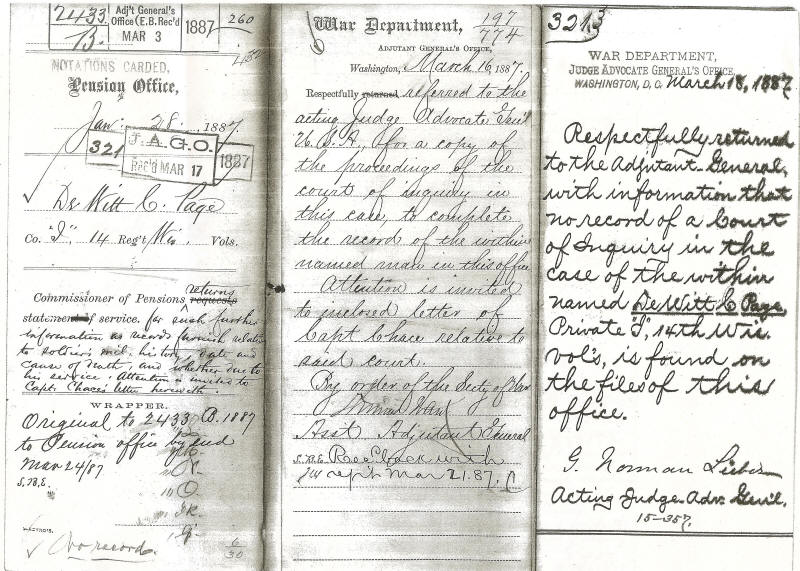 2433
B.
Adj't General's
Office (E.B. Rec'd
MAR 3
1887
260
NOTATIONS CARDED,
Pension Office,
Jan. 28, 1887.
321
J.A.G.O.
Rec'd MAR 17
1887
De Witt C. Page
Co. "I", 14 Reg't Wis. Vols.
returns
Commissioner of Pensions requests
statement of service. for such further
information as records furnish relative
to soldier's mil. history, date and
cause of death, and whether due to
his service. Attention is invited to
Capt. Chace's letter herewith.
WRAPPER.
Original to 2433 B. 1887
to Pension office by end
Mar 24/87
S.M.E.
No record.
6
30
197
774
War Department,
ADJUTANT GENERAL'S OFFICE,
Washington, March 16, 1887.
Respectfully returned referred to the
acting Judge Advocate Gen'l
U.S.A., for a copy of
the proceedings of the
court of inquiry in
this case, to complete
the record of the within
named man in this office
Attention is invited
to inclosed letter of
Capt Chace relative to
said court.
By order of the Secty of War
Asst Adjutant General
S.M.E. Rec'd back with
rep't Mar 21. 87.
3213
WAR DEPARTMENT,
JUDGE ADVOCATE GENERAL'S OFFICE,
WASHINGTON, D.C. March 18, 1887
Respectfully returned
to the Adjutant-General,
with information that
no record of a Court
of Inquiry in the
case of the within
named De Witt C Page
Private "I", 14th Wis.
vol's, is found on
the files of this
office.
G. Norman Lieber
Acting Judge-Adv. Gen'l.
15-357.